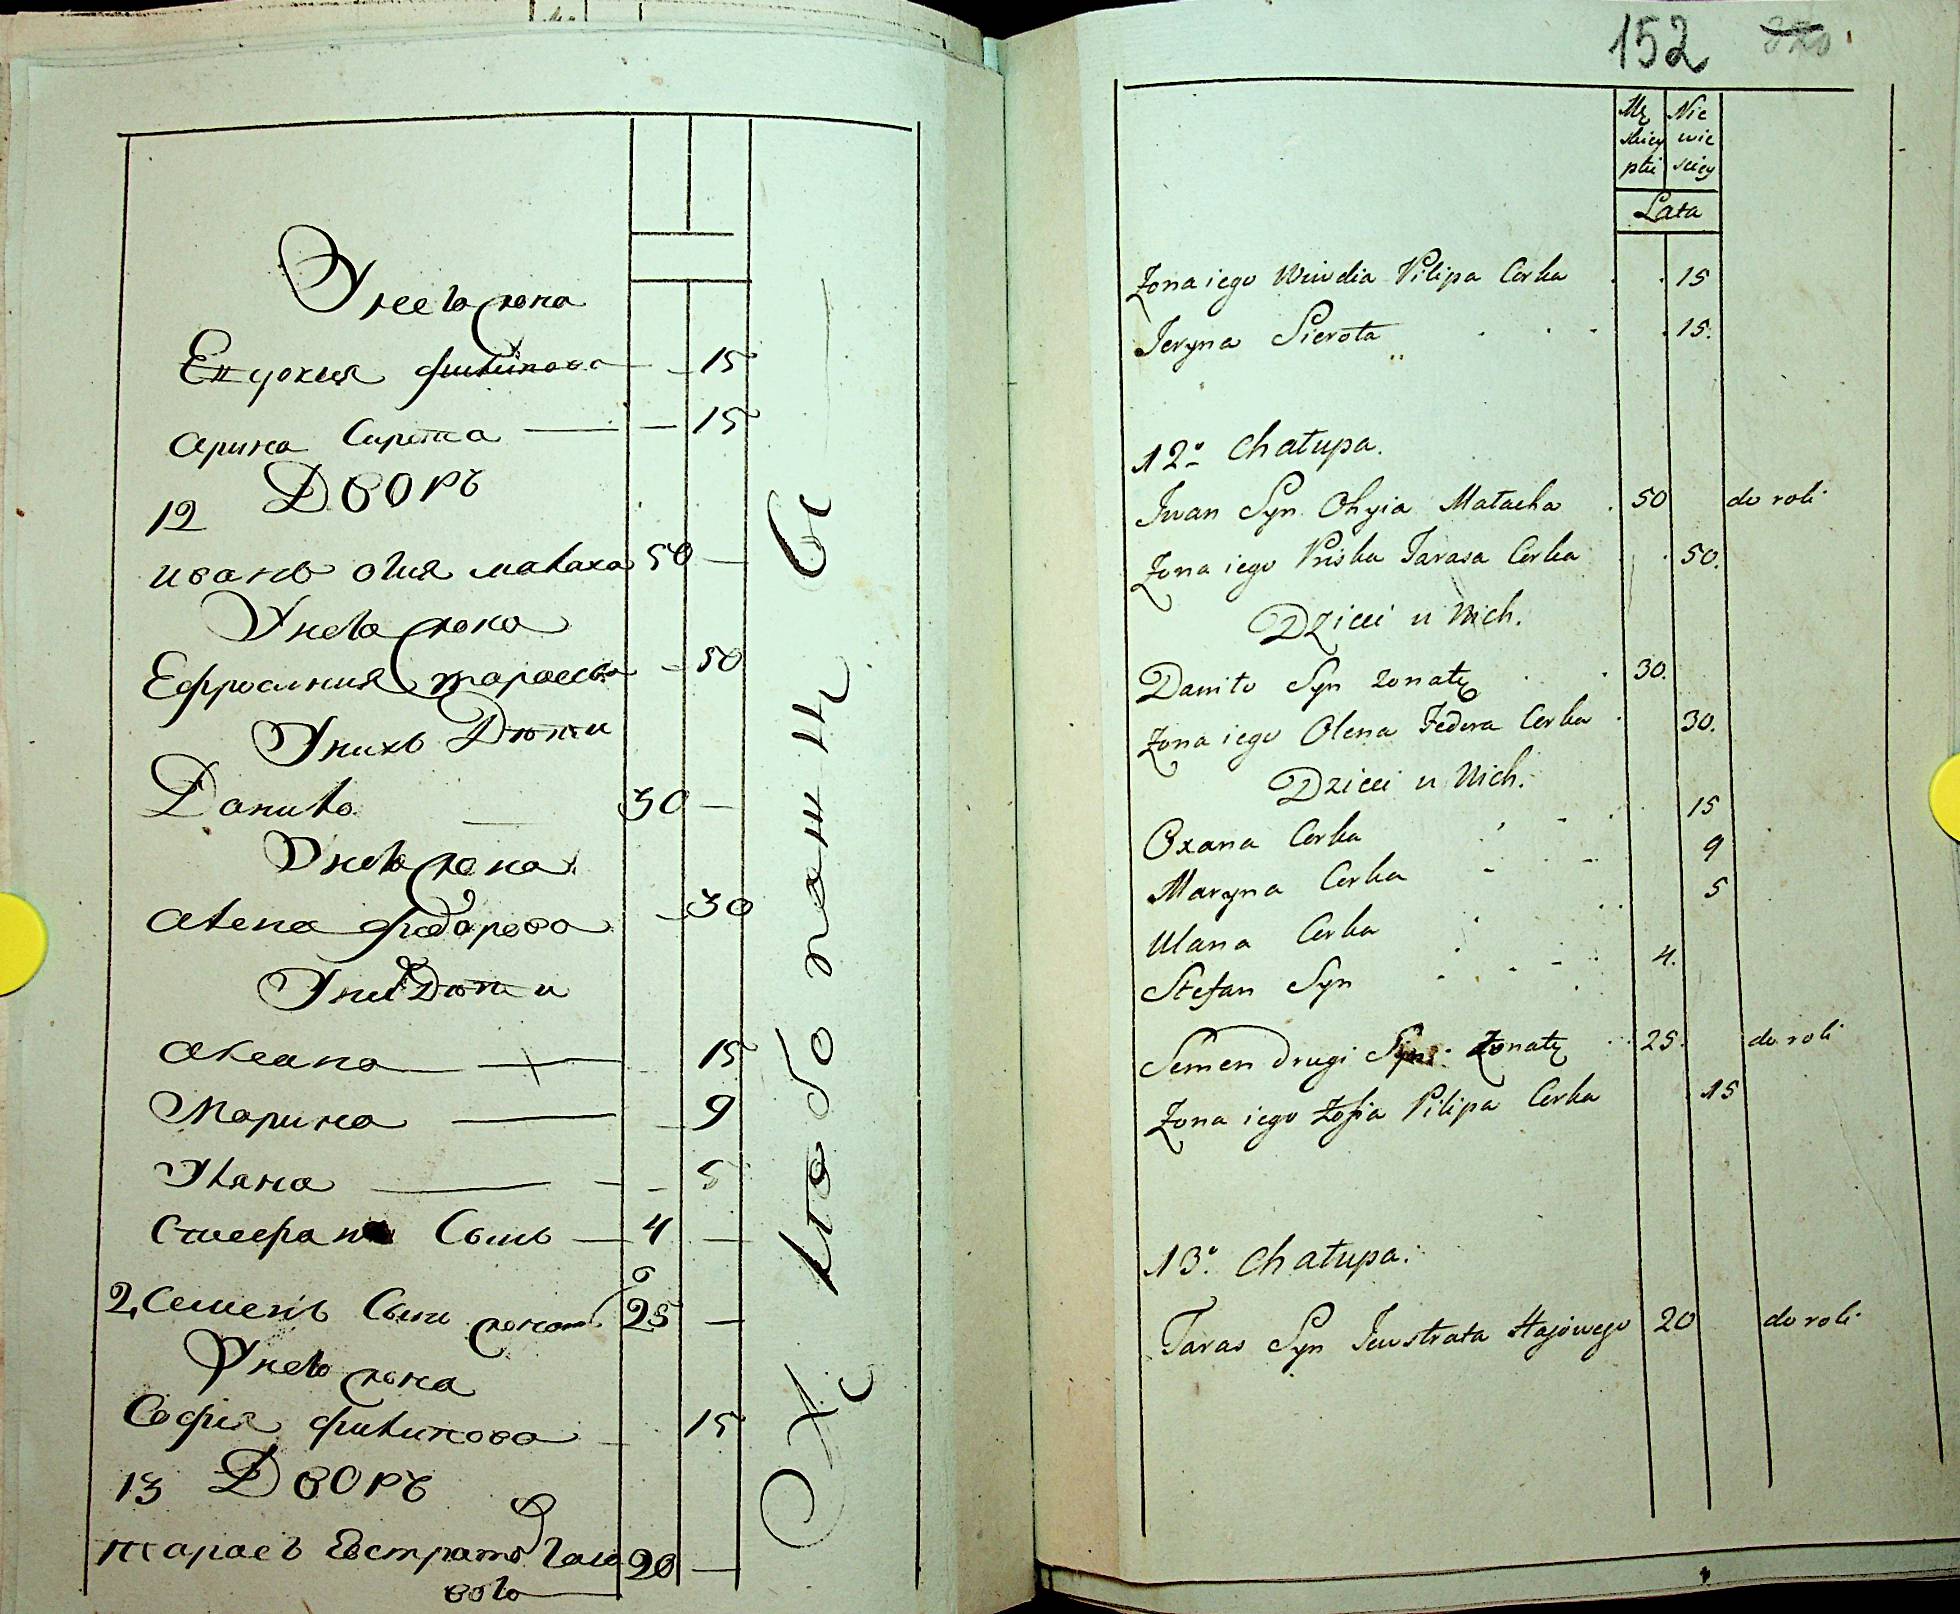 У нево жона
Евдокия филипова 15
арина Сирота 15
12 ДВОРЪ
иванъ огия малаха 50
У нево жона
Ефросиния тарасова 50
У нихъ Дѣти
Данило 30
У нево жона
алена фиодорова 30
У них Дѣти
аксана 15
Марина 9
Уляна 5
Стефанъ Сынъ 4
2, Семенъ Сынъ жонат 25
У нево жона
София филипова 15
13 ДВОРЪ
тарасъ Евстратов Гаю 20
вого
152
Mę Nie
skiey wie
płci sciey
Lata
Żona iego Wiwdia Pilipa Corka 15
Jeryna Sierota 15.
12º Chałupa.
Jwan Syn Ohyia Małacha 50 do roli
Żona iego Priska Tarasa Corka 50.
Dzieci u Nich.
Daniło Syn żonatÿ 30.
Żona iego Olena Fedora Corka 30.
Dzieci u Nich.
Oxana Corka 15
Maryna Corka 9
Ulana Corka 5
Stefan Syn 4.
Semen drugi Syn Żonaty 25. do roli
Żona iego Zofia Pilipa Corka 15
13º Chałupa.
Taras Syn Jewstrata Hajowego 20 do roli